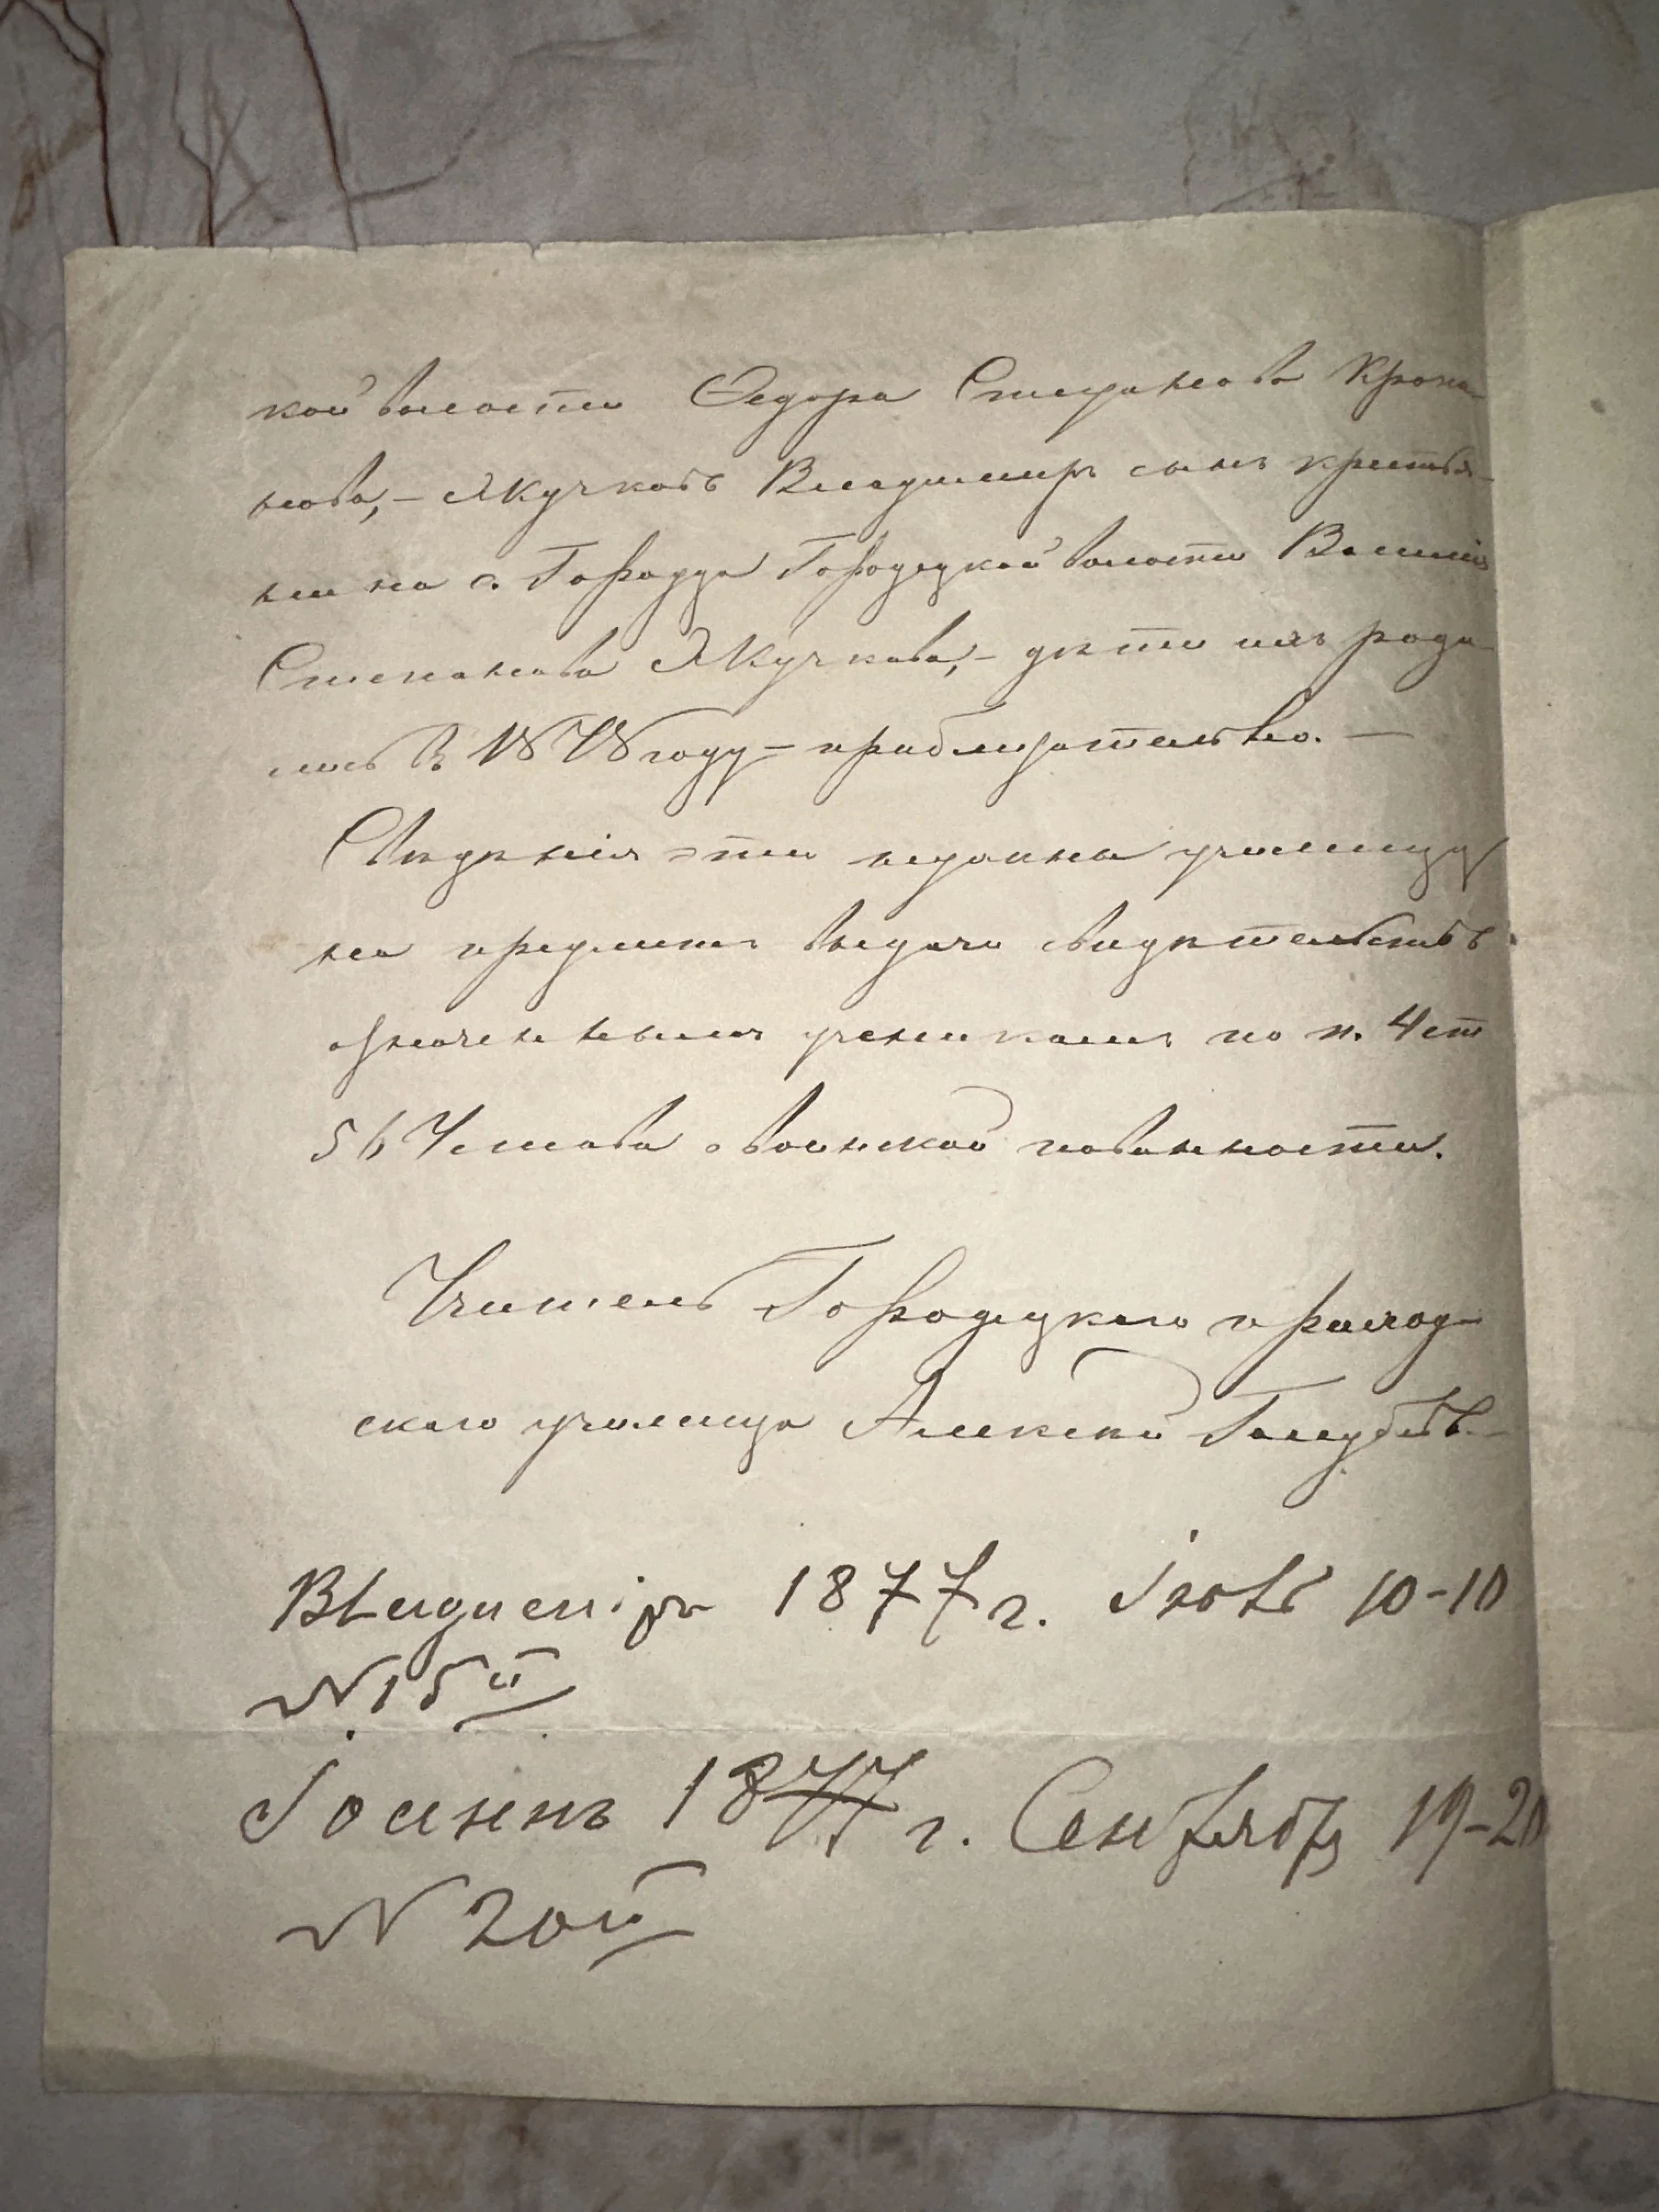 кой волости Ѳедора Степанова Крона-
нова, – Якучковъ Владимиръ сынъ крестья-
нина с. Городца Городецкой волости Василія
Степанова Якучкова, – дѣти иль роди-
лись въ 1878 году – приблизительно. –
Свѣдѣнія эти нужны училищу
на предметъ выдачи свидѣтельствъ
означеннымъ ученикамъ по п. 4 ст
56 Устава о воинской повинности.
Учитель Городецкаго приход-
скаго училища Алексѣй Голубевъ
Владимiръ 1877 г. Iюль 10-10
№ 15й
Iоаннъ 1877 г. Сентября 19-20
№ 20й